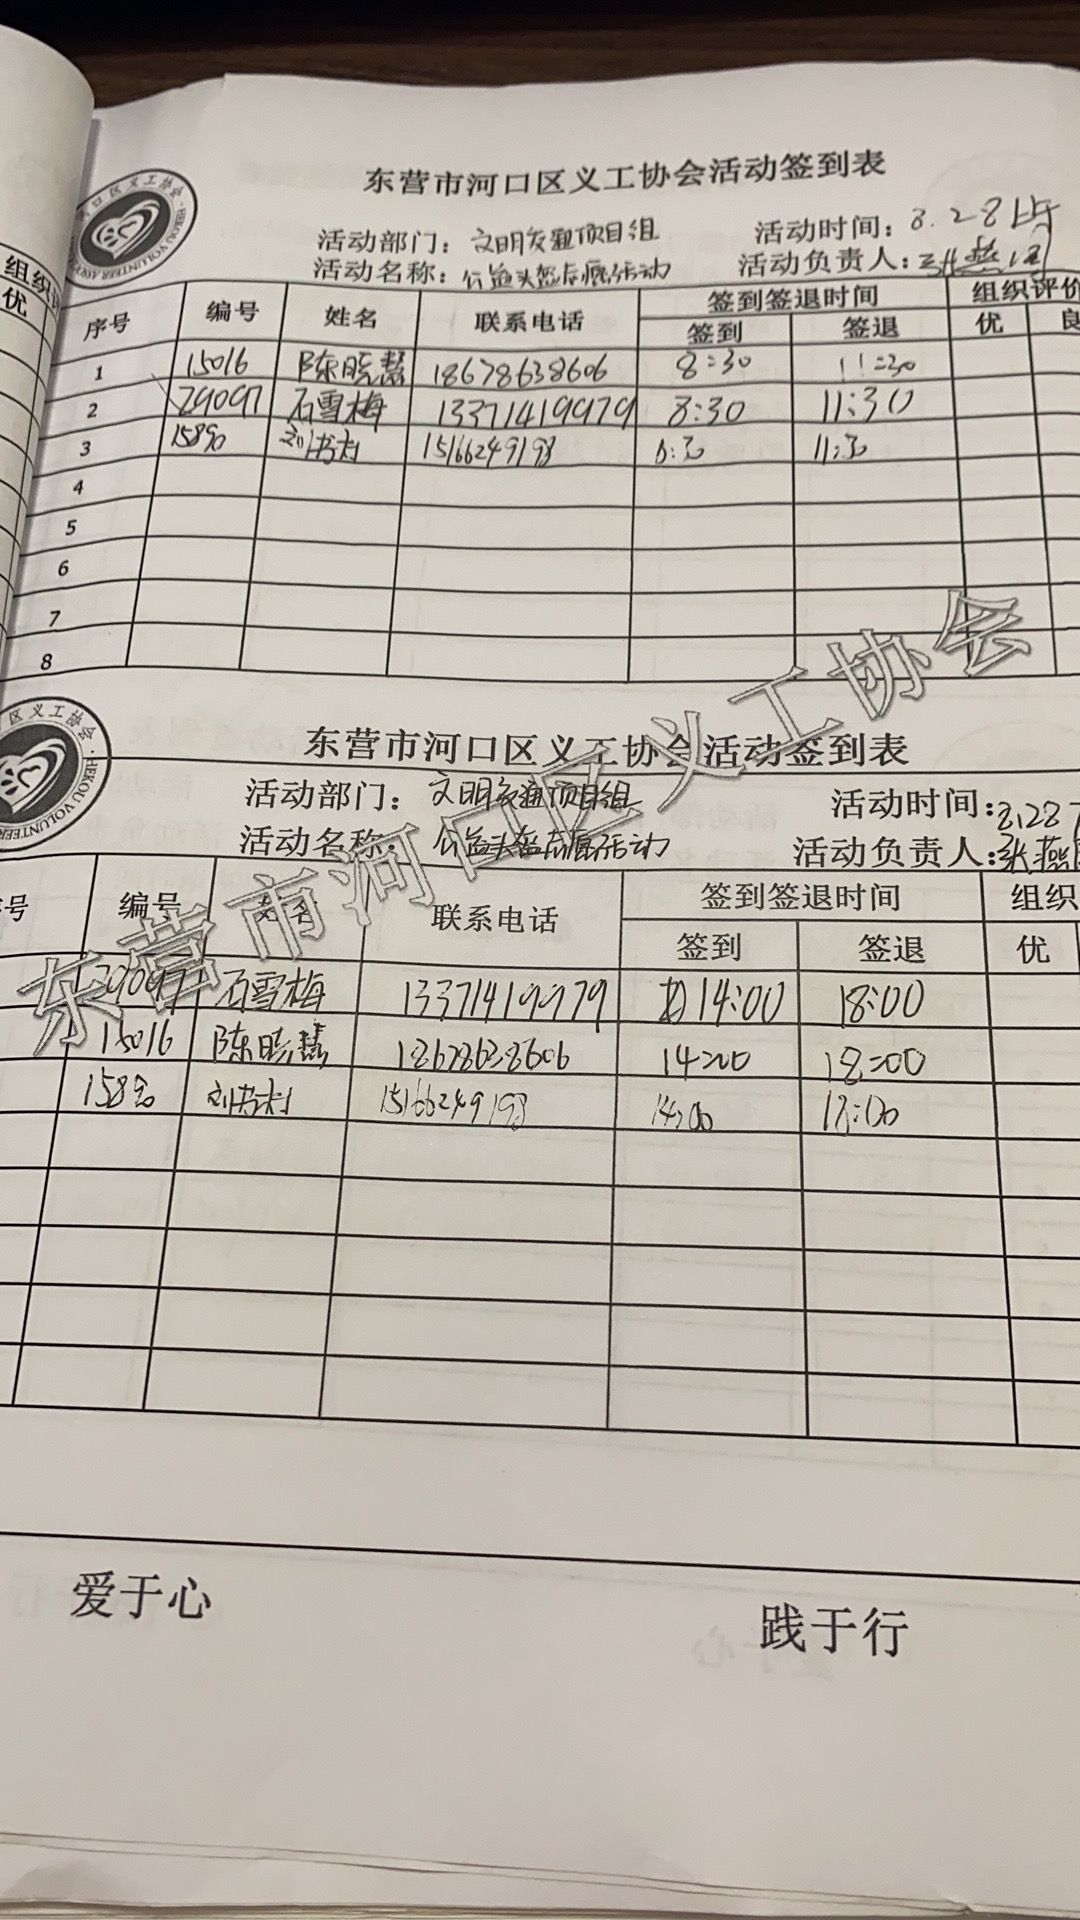 东营市河口区义工协会活动签到表
活动部门：文明交通项目组 活动时间：8.28上午
活动名称：公益头盔点癃活动 活动负责人：张燕
序号 编号 姓名 联系电话 签到签退时间 组织评价
签到 签退 优 良
1 15016 陈晓慧 18678638606 8:30 11:30
2 29097 石雪梅 13371419979 8:30 11:30
3 15890 15166249198 8:30 11:30
4
5
6
7
8
组织
优
东营市河口区义工协会活动签到表
活动部门：文明交通项目组 活动时间：8.28
活动名称：公益头盔 活动 活动负责人：张燕
号 编号 姓名 联系电话 签到签退时间 组织
签到 签退 优
29097 石雪梅 13371419979 14:00 18:00
15016 陈晓慧 18678638606 14:00 18:00
15890 15166249198 14:00 18:00
爱于心 践于行
东营市河口区义工协会